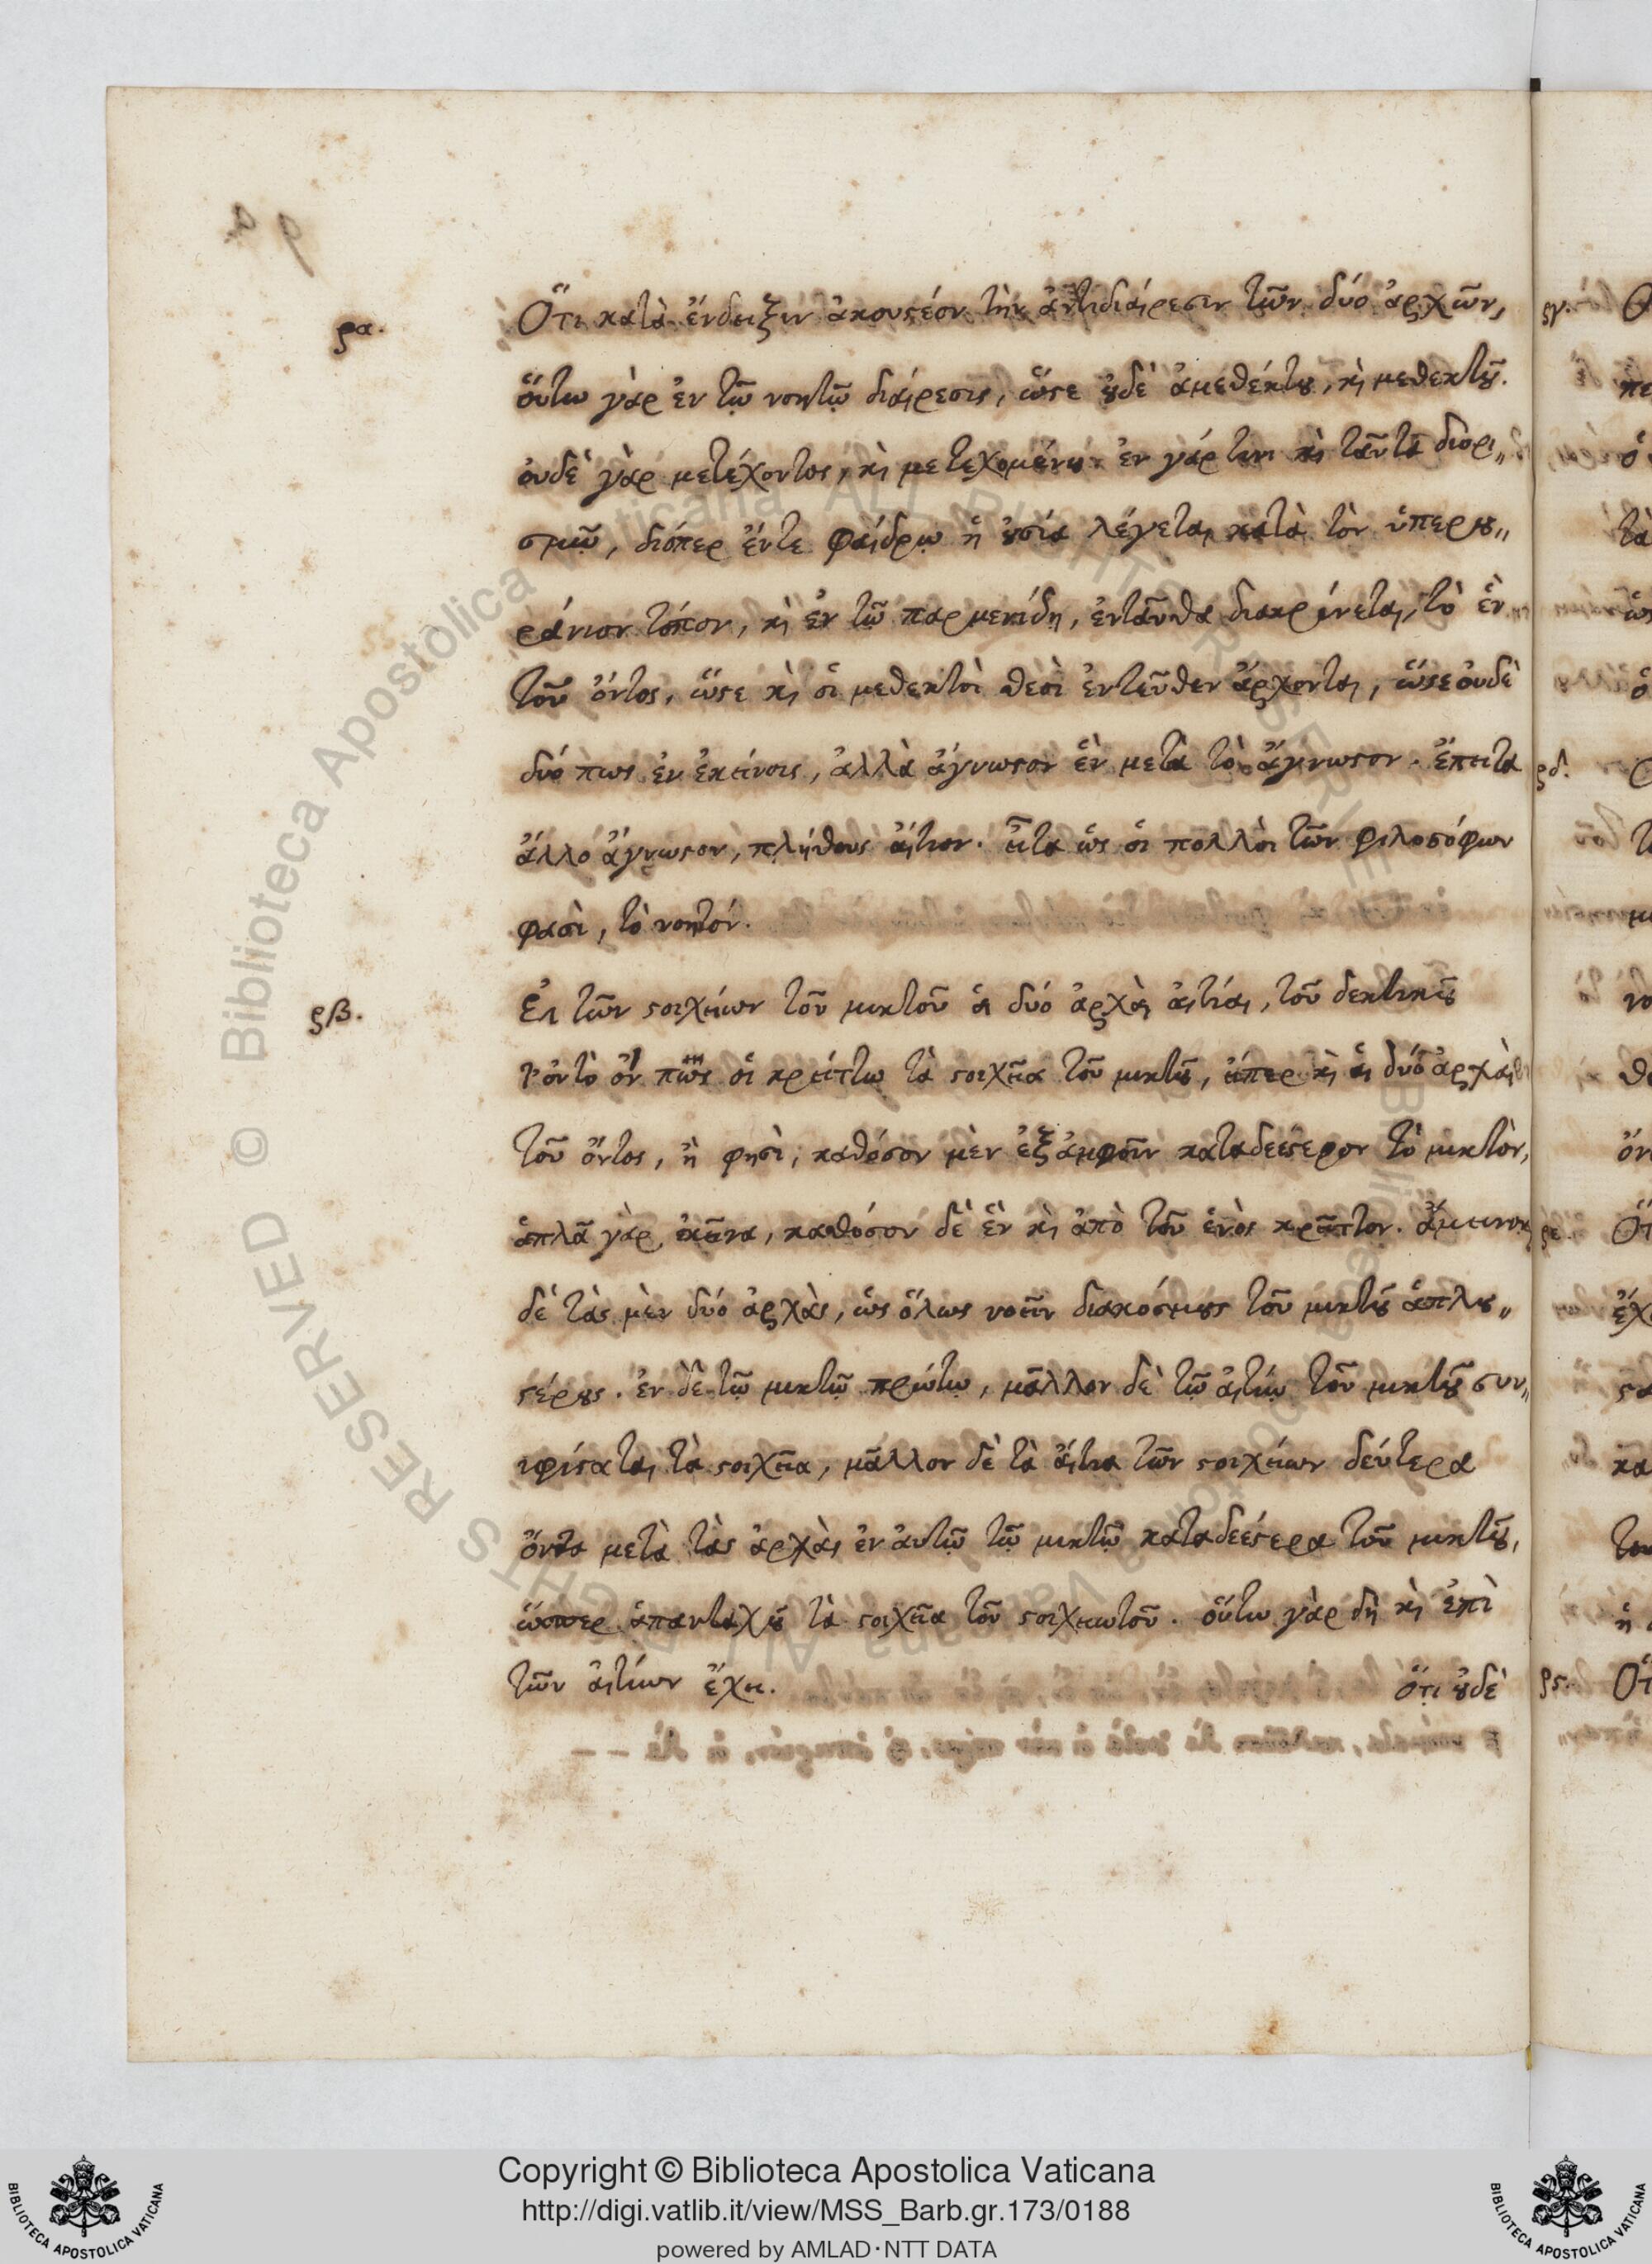 ρα.
Ὅτι κατὰ ἔνδειξιν ἀκουστέον τὴν ἀντιδιαίρεσιν τῶν δύο ἀρχῶν,
οὕτω γὰρ ἐν τῷ νοητῷ διαίρεσις, ὥστε οὐδὲ ἀμεθέκτου, καὶ μεθεκτοῦ.
οὐδὲ γὰρ μετέχοντος, καὶ μετεχομένου· ἐν γάρ τινι καὶ ταῦτα διορι„
σμῷ, διόπερ ἔντε φαίδρῳ ἡ οὐσία λέγεται κατὰ τὸν ὑπερου„
ράνιον τόπον, καὶ ἐν τῷ παρμενίδῃ, ἐνταῦθα διακρίνεται, τὸ ἓν
τοῦ ὄντος, ὥστε καὶ οἱ μεθεκτοὶ θεοὶ ἐντεῦθεν ἄρχονται, ὥστε οὐδὲ
δύο πως ἐν ἐκείνοις, ἀλλὰ ἄγνωστον ἓν μετὰ τὸ ἄγνωστον. ἔπειτα
ἄλλο ἄγνωστον, πλήθους αἴτιον. εἶτα ὡς οἱ πολλοὶ τῶν φιλοσόφων
φασὶ, τὸ νοητόν.
ρβ.
Εἰ τῶν στοιχείων τοῦ μικτοῦ αἱ δύο ἀρχαὶ αἰτίαι, τοῦ δεκτικοῦ
οντὸ ὂν πῶς οἱ κρείττω τὰ στοιχεῖα τοῦ μικτοῦ, εἴπερ καὶ αἱ δύο ἀρχαὶ
τοῦ ὄντος, ἢ φησὶ, καθόσον μὲν ἐξ ἀμφοῖν καταδεέστερον τὸ μικτὸν,
ἁπλᾶ γὰρ ἐκεῖνα, καθόσον δὲ ἓν καὶ ἀπὸ τοῦ ἑνὸς κρεῖττον. ἄμεινον
δὲ τὰς μὲν δύο ἀρχὰς, ὡς ὅλως νοεῖν διακόσμους τοῦ μικτοῦ ἁπλου„
στέρους. ἐν δὲ τῷ μικτῷ πρώτῳ, μᾶλλον δὲ τῷ αἰτίῳ τοῦ μικτοῦ συν„
υφίσταται τὰ στοιχεῖα, μᾶλλον δὲ τὰ αἴτια τῶν στοιχείων δεύτερα
ὄντα μετὰ τὰς ἀρχὰς ἐν αὐτῷ τῷ μικτῷ καταδεέστερα τοῦ μικτοῦ,
ὥσπερ ἁπανταχοῦ τὰ στοιχεῖα τοῦ στοιχειωτοῦ. οὕτω γὰρ δὴ καὶ ἐπὶ
τῶν αἰτίων ἔχει.
ὅτι οὐδὲ
Copyright © Biblioteca Apostolica Vaticana
http://digi.vatlib.it/view/MSS_Barb.gr.173/0188
powered by AMLAD · NTT DATA
BIBLIOTECA APOSTOLICA VATICANA
BIBLIOTECA APOSTOLICA VATICANA